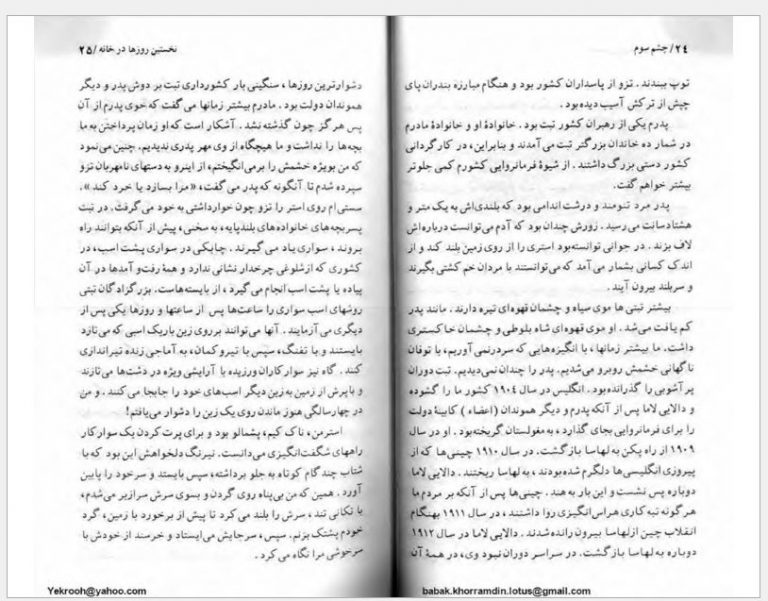 ۲۴/ چشم سوم
توپ ببندند . تزو از پاسداران کشور بود و هنگام مبارزه بندران پای
چپش از ترکش آسیب دیده بود .
پدرم یکی از رهبران کشور تبت بود . خانوادهٔ او و خانوادهٔ مادرم
در شمار ده خاندان بزرگتر تبت می‌آمدند و بنابراین، در کارگردانی
کشور دستی بزرگ داشتند . از شیوهٔ فرمانروایی کشورم کمی جلوتر
بیشتر خواهم گفت.
پدر مرد تنومند و درشت اندامی بود که بلندی‌اش به یک متر و
هشتاد سانت می‌رسید . زورش چندان بود که آدم می‌توانست درباره‌اش
لاف بزند . در جوانی توانسته بود استری را از روی زمین بلند کند و از
اندک کسانی بشمار می‌آمد که می‌توانستند با مردان خم کشتی بگیرند
و سربلند بیرون آیند .
بیشتر تبتی ها موی سیاه و چشمان قهوه‌ای تیره دارند . مانند پدر
کم یافت می‌شد . او موی قهوه‌ای شاه بلوطی و چشمان خاکستری
داشت . ما بیشتر زمانها، با انگیزه‌هایی که سردرنمی آوریم، با توفان
ناگهانی خشمش روبرو می‌شدیم . پدر را چندان نمی‌دیدیم. تبت دوران
پر آشوبی را گذرانده بود . انگلیس در سال ۱۹۰۴ کشور ما را گشوده
و دالایی لاما پس از آنکه پدرم و دیگر هموندان (اعضاء ) کابینهٔ دولت
را برای فرمانروایی بجای گذارد، به مغولستان گریخته بود . او در سال
۱۹۰۹ از راه پکن به لهاسا بازگشت. در سال ۱۹۱۰ چینی‌ها که از
پیروزی انگلیسی‌ها دلگرم شده بودند، به لهاسا ریختند . دالایی لاما
دوباره پس نشست و این بار به هند . چینی‌ها پس از آنکه بر مردم ما
هر گونه تبه کاری هراس انگیزی روا داشتند ، در سال ۱۹۱۱ بهنگام
انقلاب چین از لهاسا بیرون رانده شدند . دالایی لاما در سال ۱۹۱۲
دوباره به لهاسا بازگشت. در سراسر دوران نبود وی، در همهٔ آن
babak.khorramdin.lotus@gmail.com
نخستین روزها در خانه /۲۵
دشوارترین روزها ، سنگینی بار کشورداری تبت بر دوش پدر و دیگر
هموندان دولت بود . مادرم بیشتر زمانها می گفت که خوی پدرم از آن
پس هرگز چون گذشته نشد . آشکار است که او زمان پرداختن به ما
بچه‌ها را نداشت و ما هیچگاه از وی مهر پدری ندیدیم. چنین می‌نمود
که من بویژه خشمش را برمی‌انگیختم، از اینرو به دستهای نامهربان تزو
سپرده شدم تا آنگونه که پدر می گفت، «مرا بسازد یا خرد کند» .
سستی ام روی استر را تزو چون خوارداشتی به خود می گرفت. در تبت
پسربچه های خانواده‌های بلندپایه، به سختی، پیش از آنکه بتوانند راه
بروند ، سواری یاد می گیرند . چابکی در سواری پشت اسب، در
کشوری که از شلوغی چرخدار نشانی ندارد و همهٔ رفت و آمدها در آن
پیاده یا پشت اسب انجام می گیرد ، از بایسته‌هاست. بزرگزادگان تبتی
روشهای اسب سواری را ساعت‌ها پس از ساعتها و روزها یکی پس از
دیگری می آزمایند . آنها می‌توانند بر روی زین باریک اسبی که می‌تازد
بایستند و با تفنگ، سپس با تیرو کمان، به آماجی زنده تیراندازی
کنند . گاه نیز سوار کاران ورزیده با آرایشی ویژه در دشت‌ها می‌تازند
و با پرش از زمین به زین دیگر اسب‌های خود را جابجا می کنند . و من
در چهارسالگی هنوز ماندن روی یک زین را دشوار می‌یافتم!
استر من، ناک کیم، پشمالو بود و برای پرت کردن یک سوار کار
راههای شگفت‌انگیزی می‌دانست. نیرنگ دلخواهش این بود که با
شتاب چند گام کوتاه به جلو برداشته، سپس بایستد و سر خود را پایین
آورد . همین که من بی‌پناه روی گردن و بسوی سرش سرازیر می‌شدم،
با تکانی تند ، سرش را بلند می کرد تا پیش از برخورد با زمین، گرد
خودم پشتک بزنم. سپس، سرجایش می‌ایستاد و خرسند از خودش با
سرخوشی مرا نگاه می کرد .
Yekrooh@yahoo.com